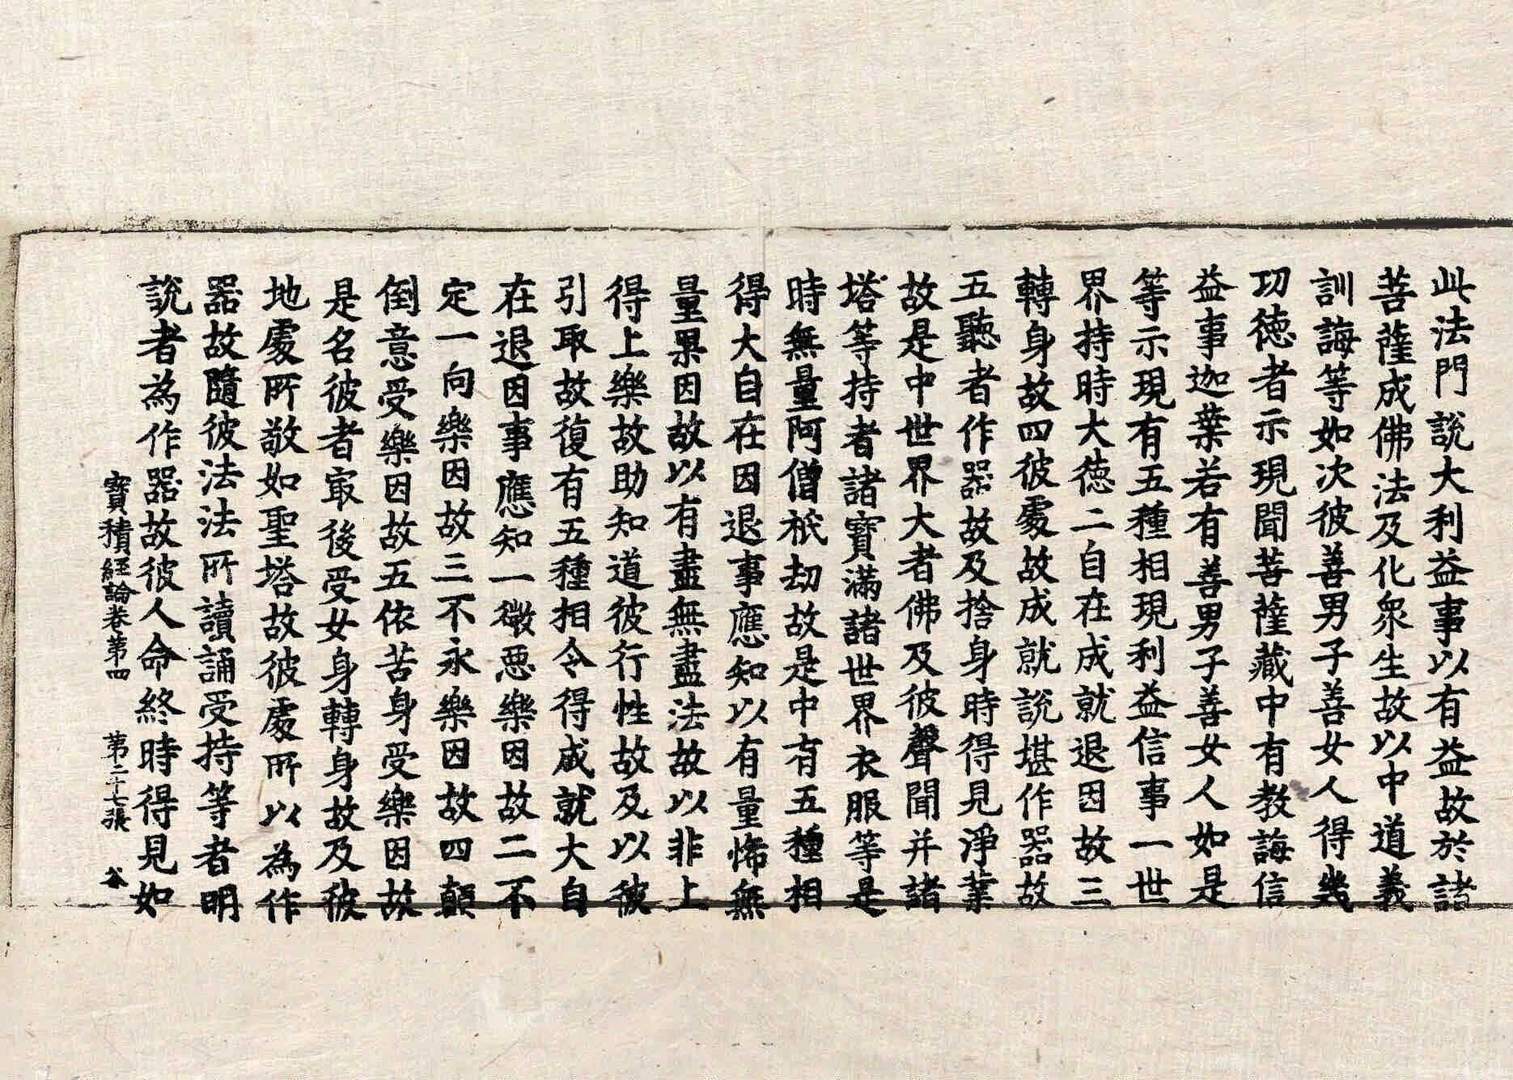 此法門說大利益事以有益故於諸
菩薩成佛法及化衆生故以中道義
訓誨等如次彼善男子善女人得幾
功德者示現聞菩薩藏中有教誨信
益事迦葉若有善男子善女人如是
等示現有五種相現利益信事一世
界持時大德二自在成就退因故三
轉身故四彼處故成就說堪作器故
五聽者作器故及捨身時得見淨業
故是中世界大者佛及彼聲聞并諸
塔等持者諸寶滿諸世界衣服等是
時無量阿僧祇劫故是中有五種相
得大自在因退事應知以有量悕無
量果因故以有盡無盡法故以非上
得上樂故助知道彼行性故及以彼
引取故復有五種相令得成就大自
在退因事應知一微惡樂因故二不
定一向樂因故三不永樂因故四顛
倒意受樂因故五依苦身受樂因故
是名彼者㝡後受女身轉身故及彼
地處所敬如聖塔故彼處所以為作
器故隨彼法法所讀誦受持等者明
說者為作器故彼人命終時得見如
寶積經論卷第四 第二十七張 谷